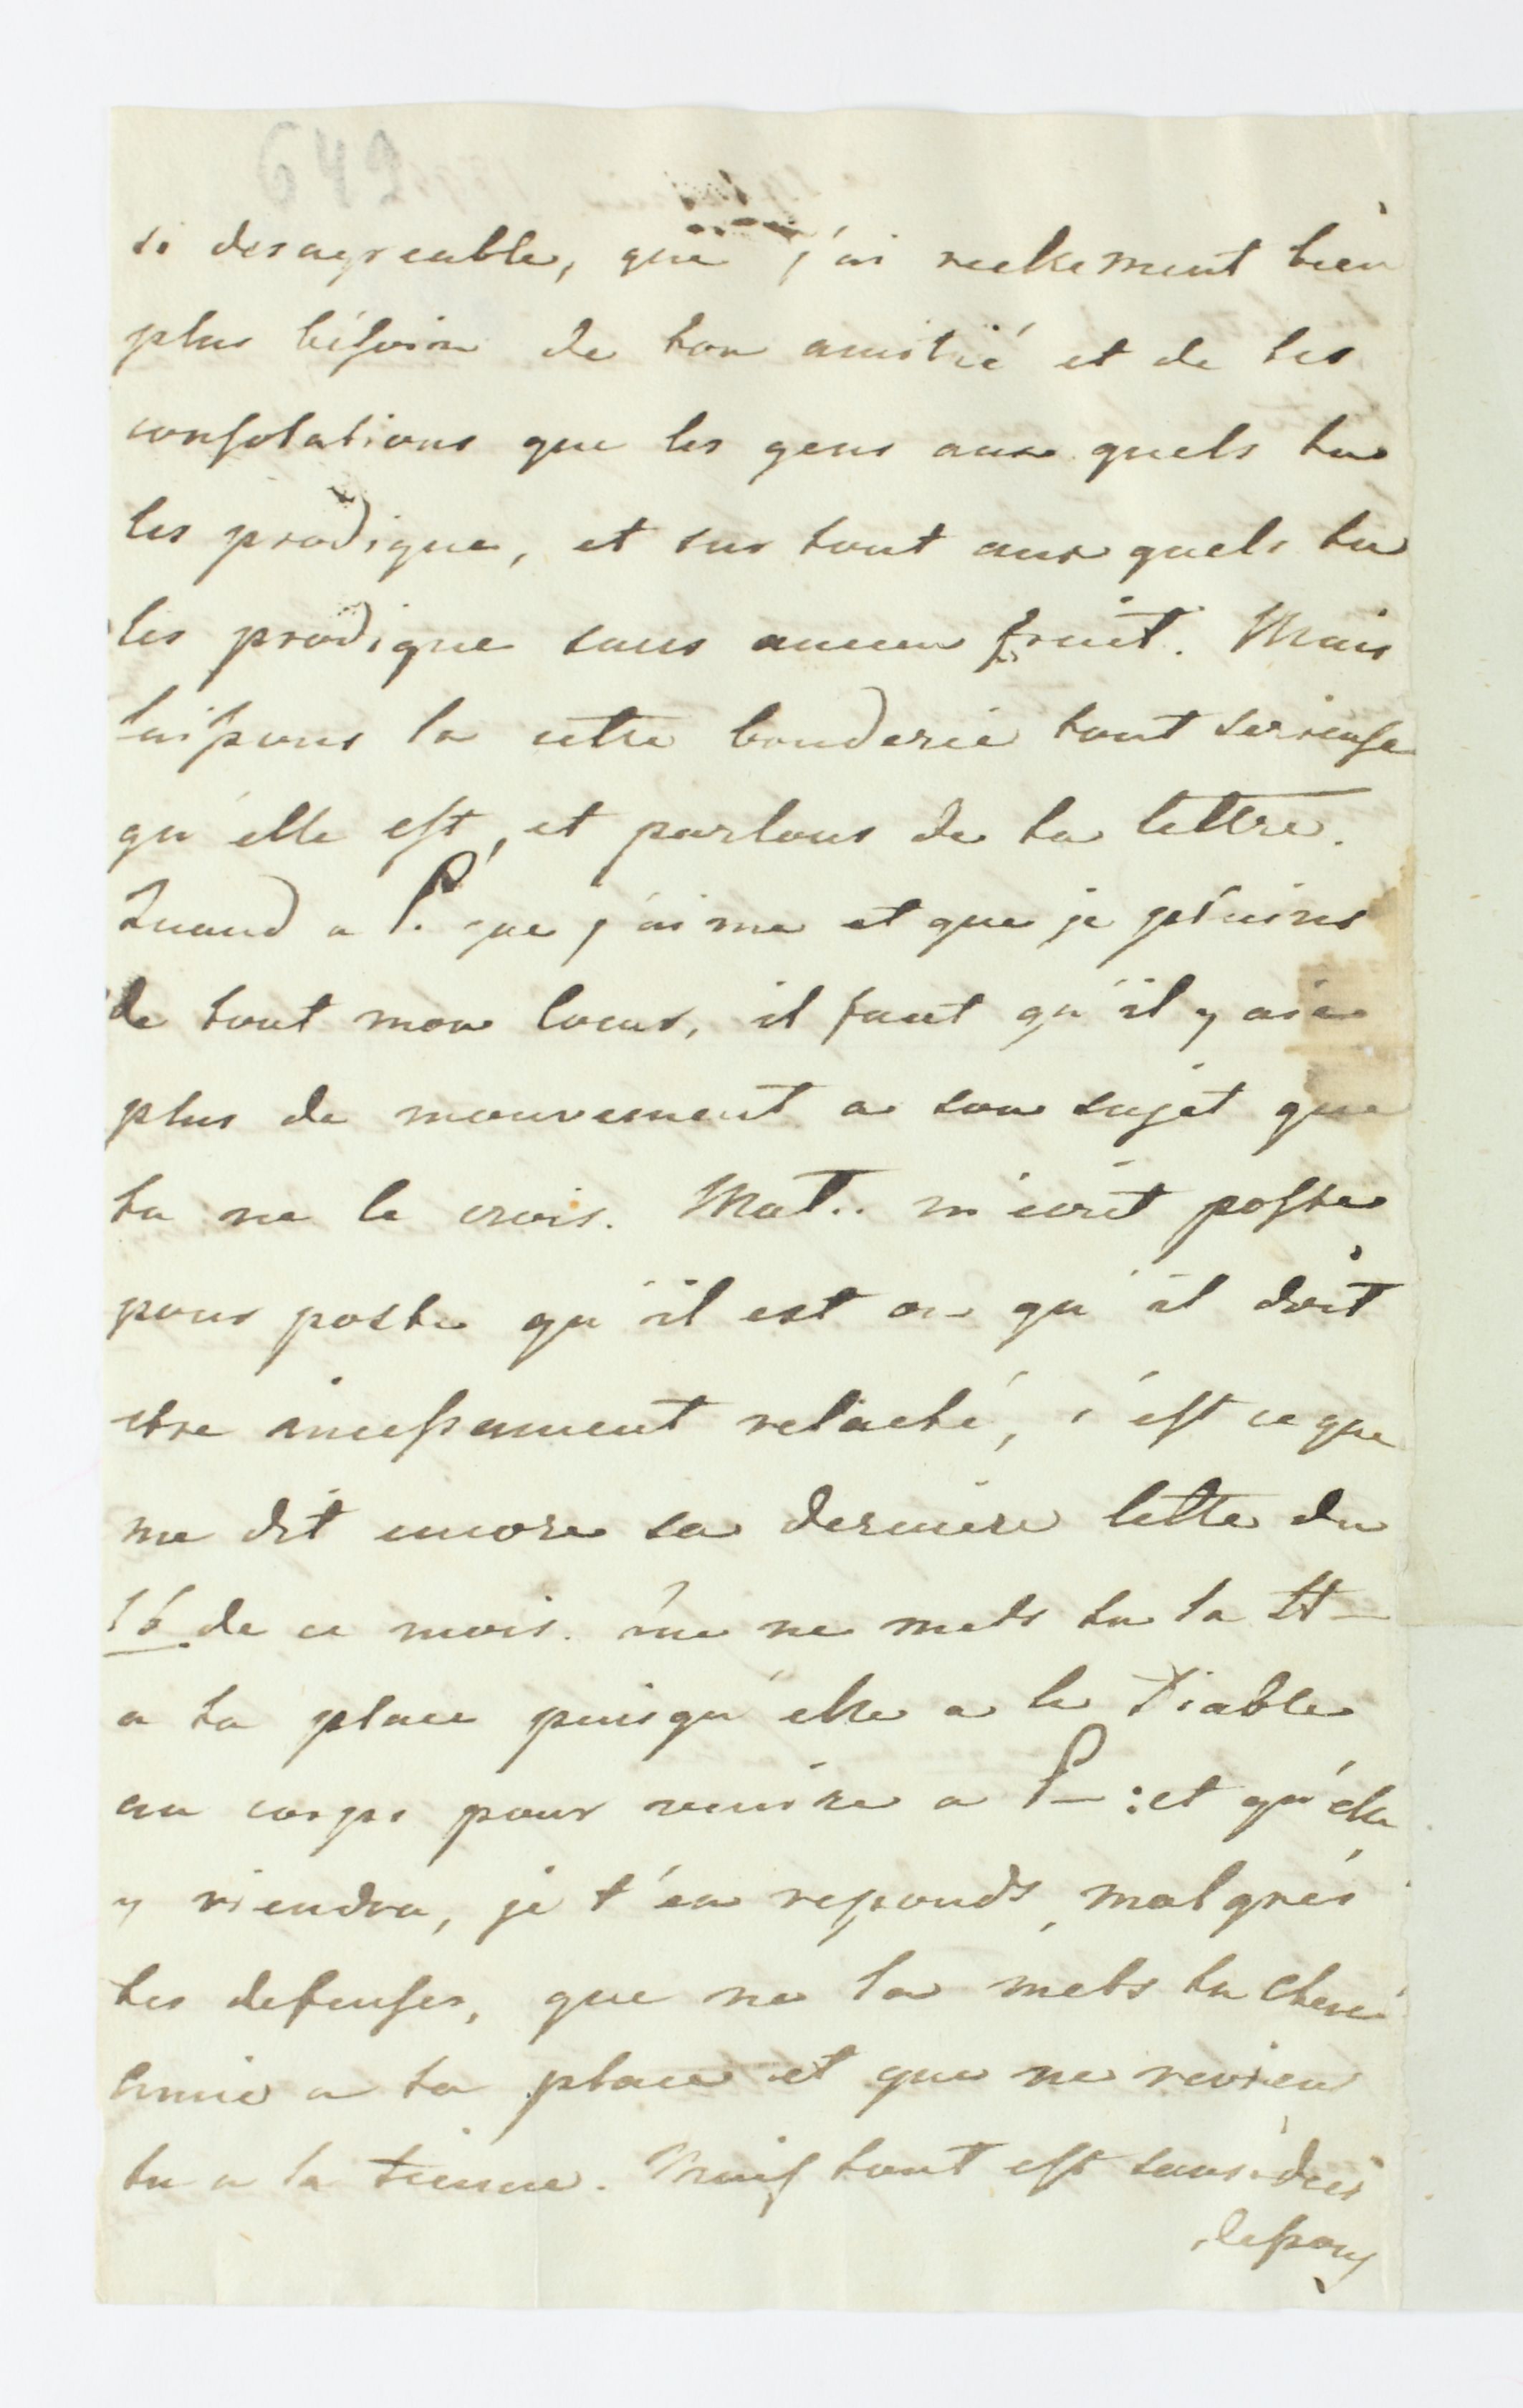 642
si desagreable, que j'ai reellement bien
plus bésoin de ton amitié et de tes
consolations que les gens aux quels tu
les prodigue, et sur tout aux quels tu
les prodigue sans aucun fruit. Mais
laissons la cette bouderie tout serieuse
qu'elle est, et parlons de ta lettre.
Quand a P. que j'aime et que je plains
de tout mon Coeur, il faut qu'il y aie
plus de mouvement a son sujet que
tu ne le crois. Mat.. m'ecrit poste
pour poste qu'il est ou qu'il doit
etre incessament relaché, c'est ce que
me dit encore sa derniere lettre du
16 de ce mois. que ne mets tu la tt—
a ta place puisqu'elle a le Diable
au corps pour venir a P—: et qu'elle
y viendra, je t'en reponds, malgrés
tes defenses, que ne la mets tu chere
Amie a ta place et que ne revien
tu a la tienne. Mais tout est sans
dessous